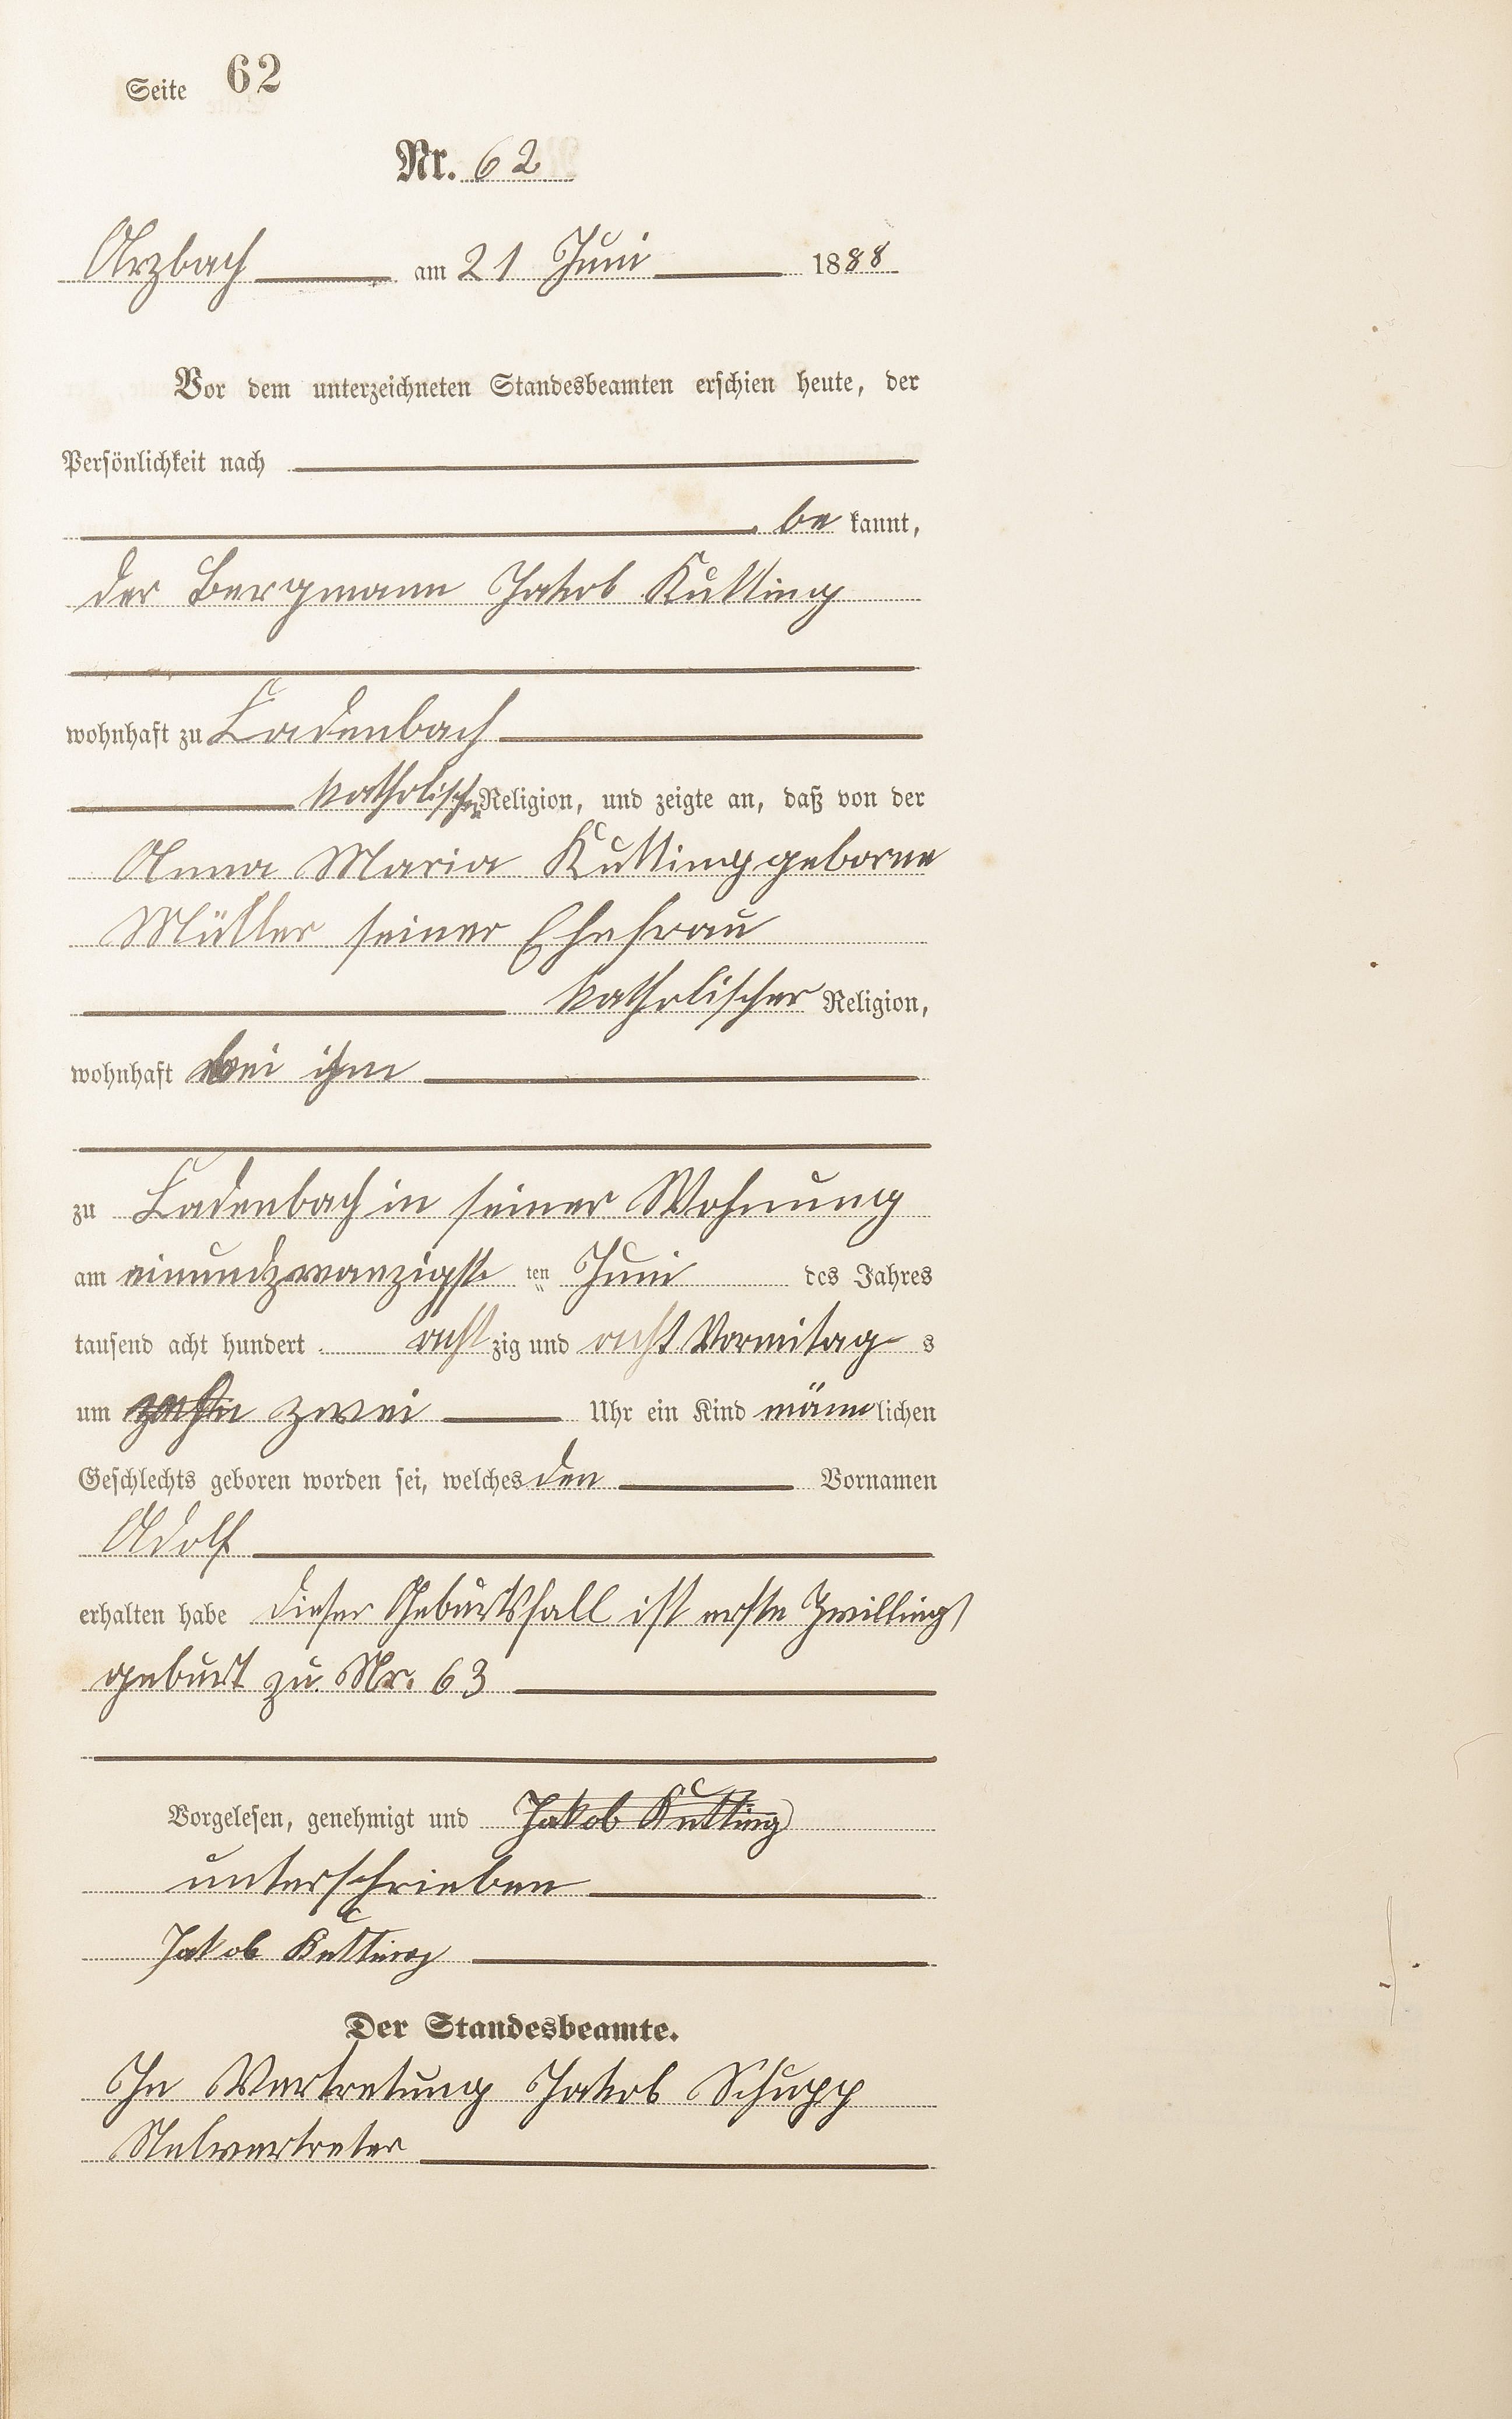 Seite 62
Nr. 62
Arzbach am 21 Juni 1888
Vor dem unterzeichneten Standesbeamten erschien heute, der
Persönlichkeit nach
be kannt,
der Bergmann Jakob Kutting
wohnhaft zu Cadenbach
katholischer Religion, und zeigte an, daß von der
Anna Maria Kutting geborne
Müller seiner Ehefrau
katholischer Religion,
wohnhaft bei ihm
zu Cadenbach in seiner Wohnung
am einundzwanzigste ten Juni des Jahres
tausend acht hundert acht zig und acht Vormitag s
um zehn zwei Uhr ein Kind männ lichen
Geschlechts geboren worden sei, welches den Vornamen
Adolf
erhalten habe dieser Geburtsfall ist erste Zwilling
geburt zu Nr. 63
Vorgelesen, genehmigt und Jakob Kutting
unterschrieben
Jakob Kutting
Der Standesbeamte.
In Vertretung Jakob Schupp
Stelvertreter